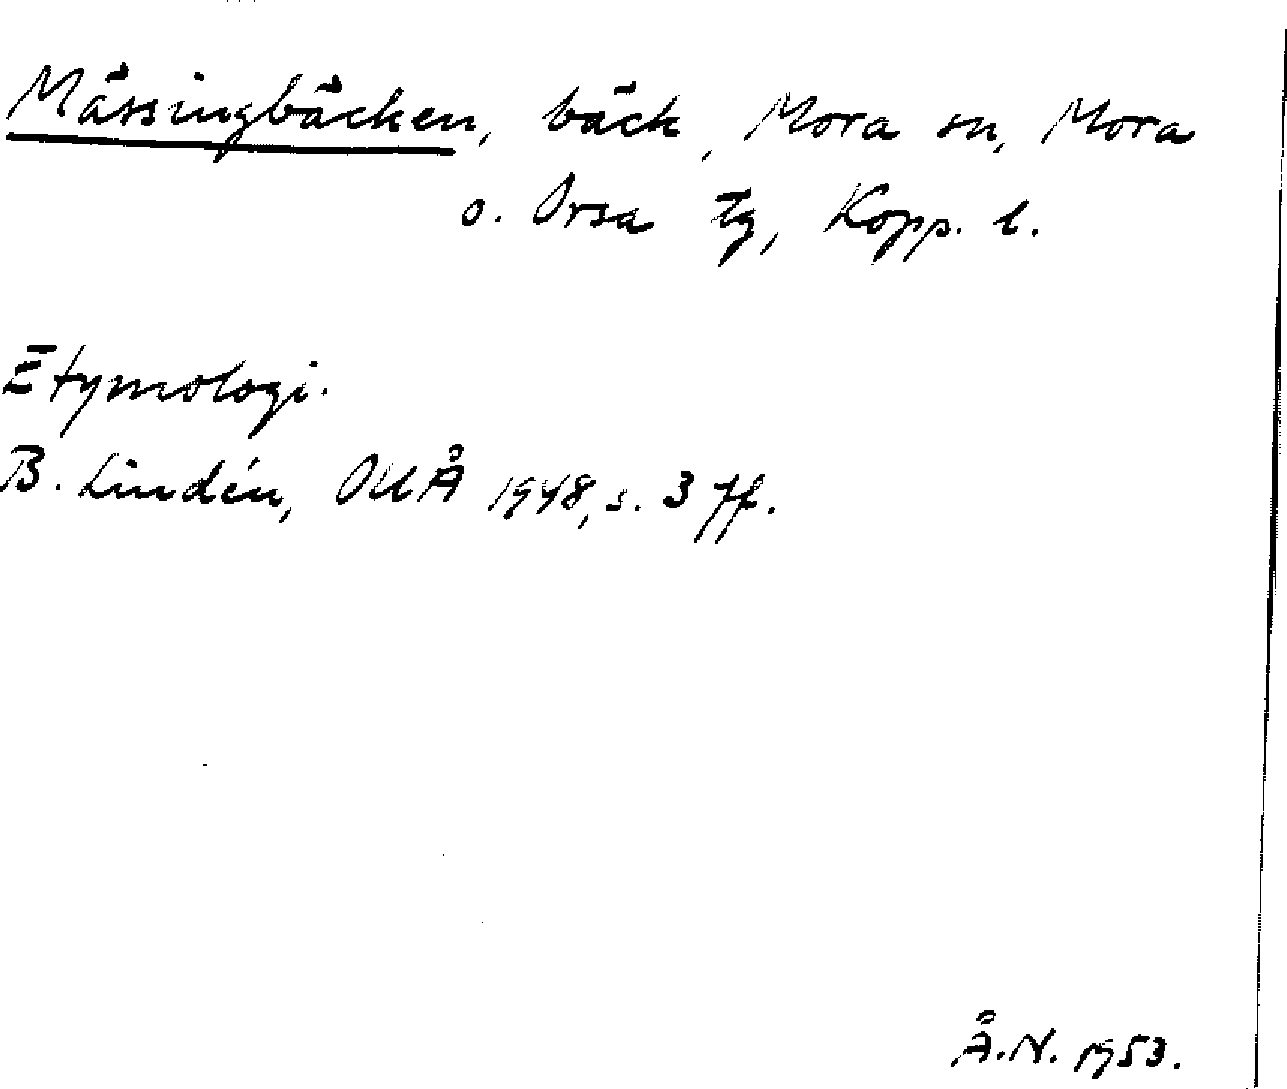 Mässingbäcken, bäck, Mora sn, Mora
o. Orsa tg, Kopp. l.
Etymologi.
B. Lindén, OUÅ 1948, s. 3 ff.
Å.N. 1953.